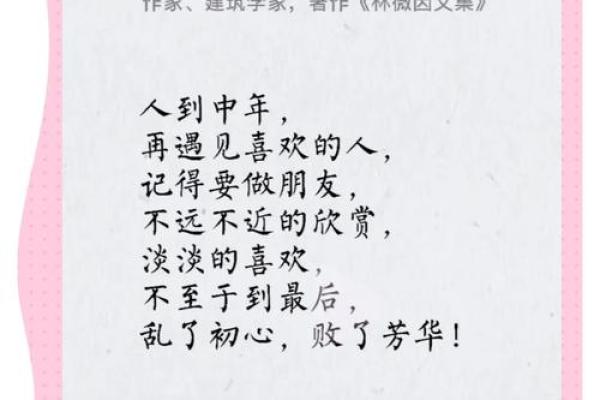 作家、建筑学家，著作《林徽因文集》
人到中年，
再遇见喜欢的人，
记得要做朋友，
不远不近的欣赏，
淡淡的喜欢，
不至于到最后，
乱了初心，败了芳华！